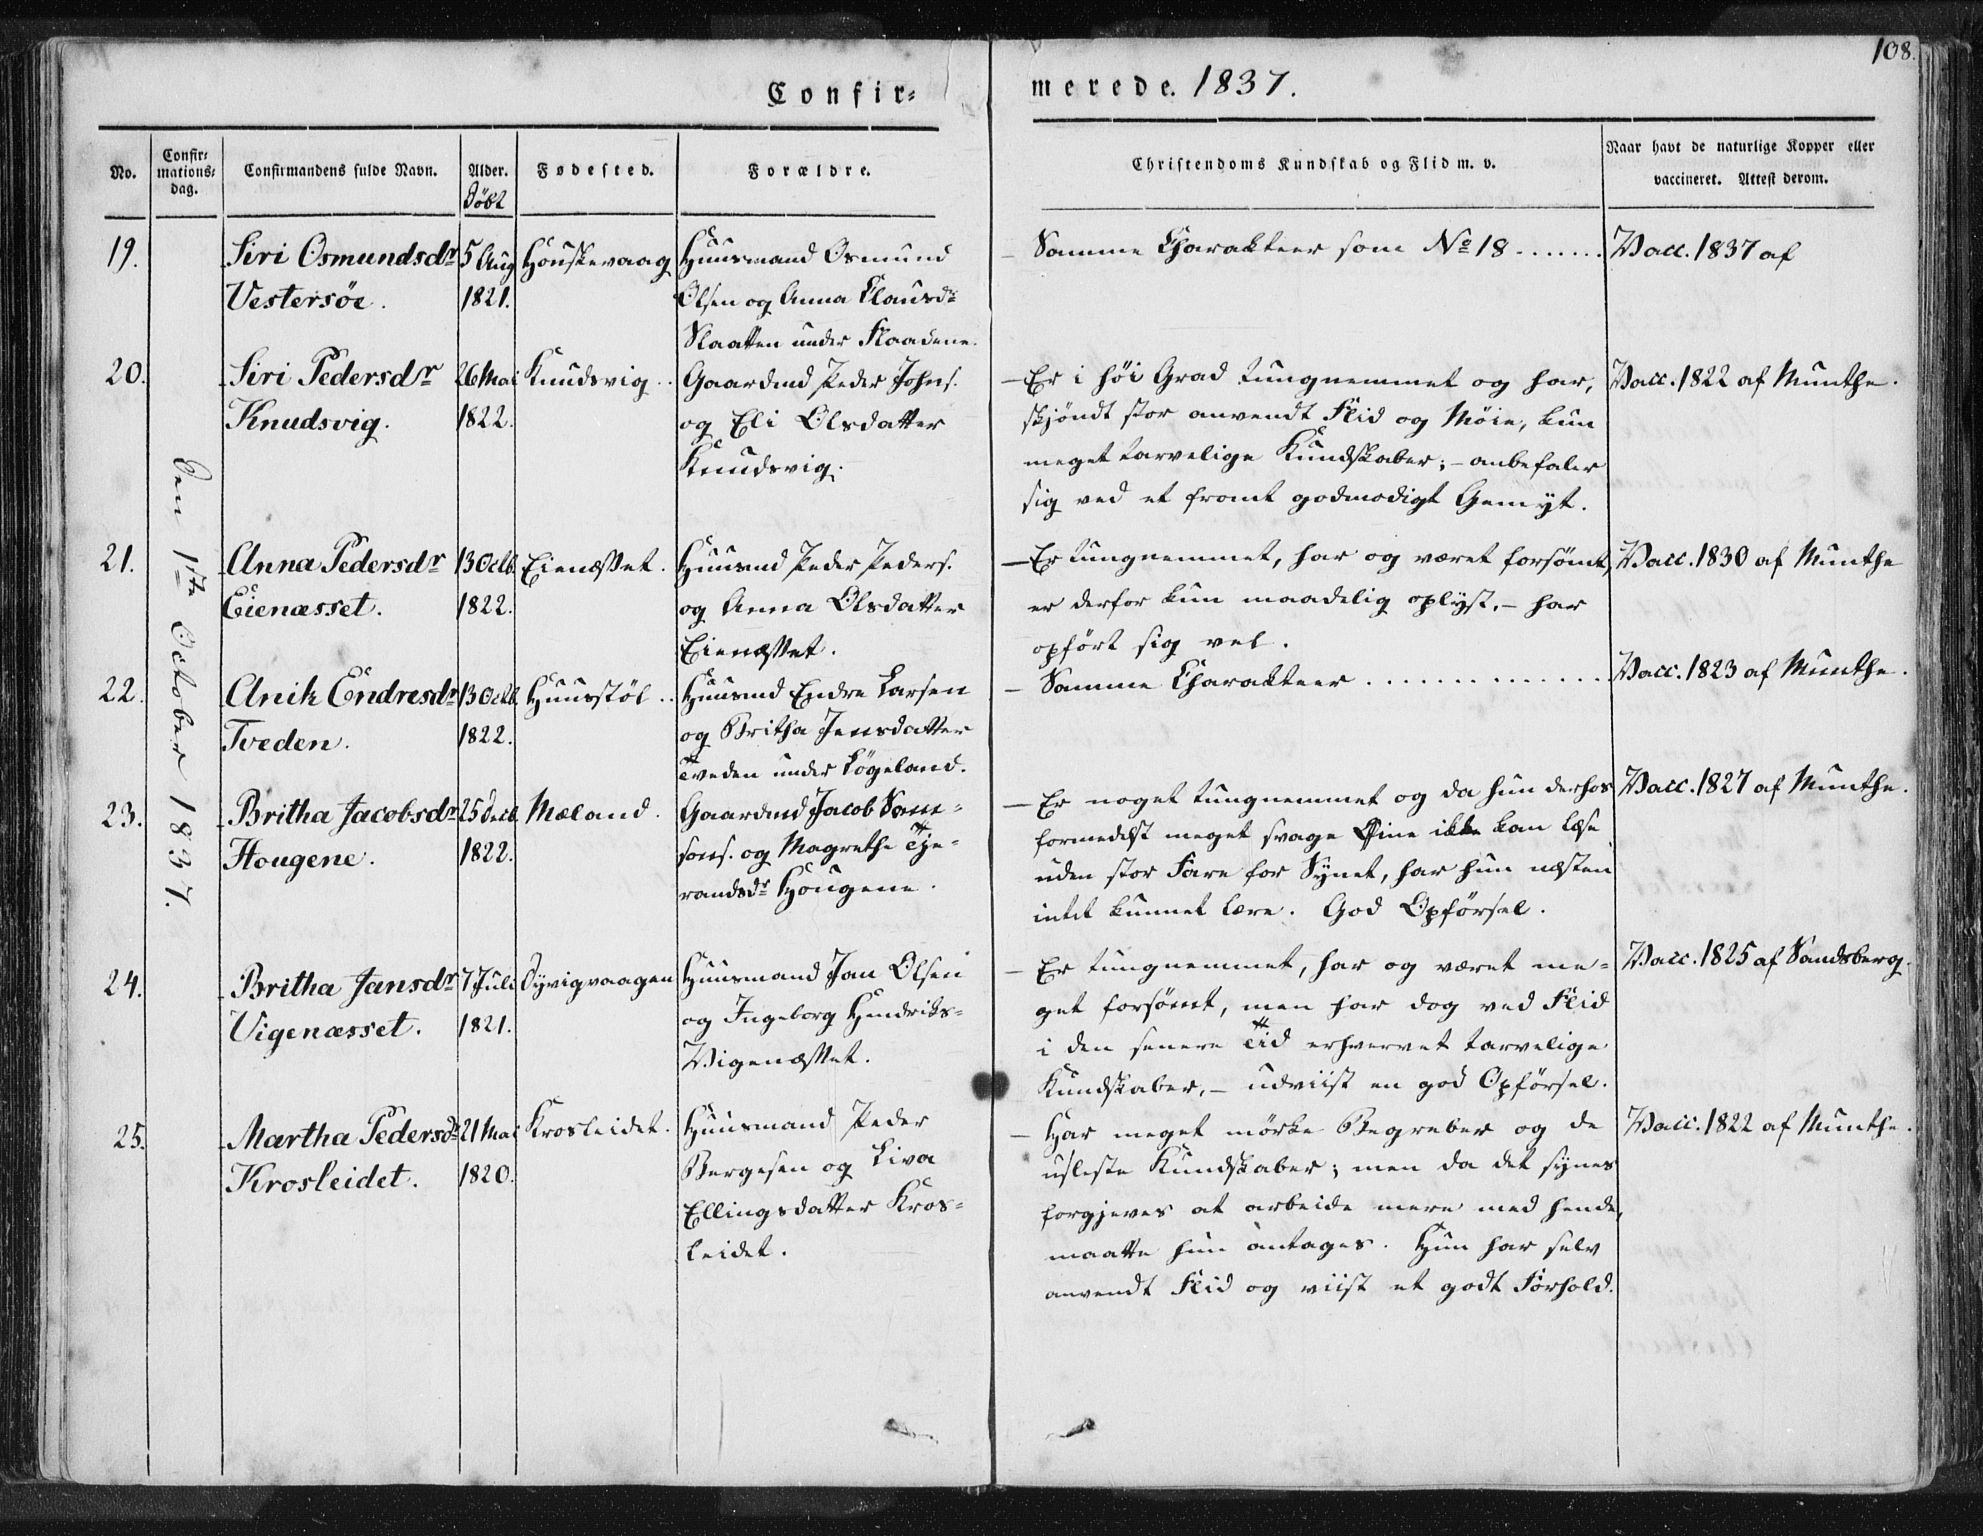 108.
Confir= merede. 1837.
No.
Confir=
mations=
dag.
Confirmandens fulde Navn.
Alder.
Døbt
Fødested.
Forældre.
Christendoms Kundskab og Flid m. v.
Naar havt de naturlige Kopper eller
vaccineret. Attest derom.
Den 1ste October 1837.
19.
Siri Osmundsdr
Vestersøe.
5 Aug
1821.
Houskevaag
Huusmand Osmund
Olsen og Anna Clausdr
Slaatten under Flaadene.
- Samme Charakteer som No 18 .......
Vacc. 1837 af
20.
Siri Pedersdr
Knudsvig.
26 Mai
1822.
Knudsvig ..
Gaardmd Peder Johns.
og Eli Olsdatter
Knudsvig.
- Er i høi Grad tungnemmet og har,
skjøndt stor anvendt Flid og Møie, kun
meget tarvelige Kundskaber; - anbefaler
sig ved et fromt godmodigt Gemyt.
Vacc. 1822 af Munthe.
21.
Anna Pedersdr
Eienæsset.
13 Octb.
1822.
Eienæsset.
Huusmd Peder Peders.
og Anna Olsdatter
Eienæsset.
- Er tungnemmet, har og været forsømt,
er derfor kun maadelig oplyst, - har
opført sig vel.
Vacc. 1830 af Munthe
22.
Anik Endresdr
Tveden.
13 Octb.
1822.
Huusstøl ..
Huusmd Endre Larsen
og Britha Jensdatter
Tveden under Løgeland.
- Samme Charakteer ..............
Vacc. 1823 af Munthe.
23.
Britha Jacobsdr
Hougene.
25 Decb.
1822.
Mæland.
Gaardmd Jacob Sam=
sons. og Magrethe Tje=
randsdr Hougene.
- Er noget tungnemmet og da hun derhos
formedelst meget svage Øine ikke kan læse
uden stor Fare for Synet, har hun næsten
intet kunnet lære. God Opførsel.
Vacc. 1827 af Munthe.
24.
Britha Jansdr
Vigenæsset.
7 Juli
1821.
Dyvigvaagen
Huusmand Jan Olsen
og Ingeborg Hendriks=
Vigenæsset.
- Er tungnemmet, har og været me=
get forsømt, men har dog ved Flid
i den senere Tid erhvervet tarvelige
Kundskaber, - udviist en god Opførsel.
Vacc. 1825 af Sandsberg.
25.
Martha Pedersdr
Krosleidet.
21 Mai
1820.
Krosleidet.
Huusmand Peder
Bergesen og Liva
Ellingsdatter Kros=
leidet.
- Har meget mörke Begreber og de
usleste Kundskaber; men da det synes
forgjeves at arbeide mere med hende,
maatte hun antages. Hun har selv
anvendt Flid og viist et godt Forhold.
Vacc. 1822 af Munthe.